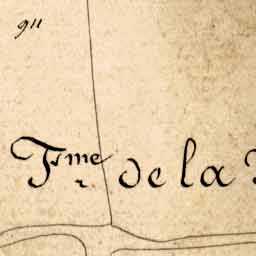 911
Fme de la